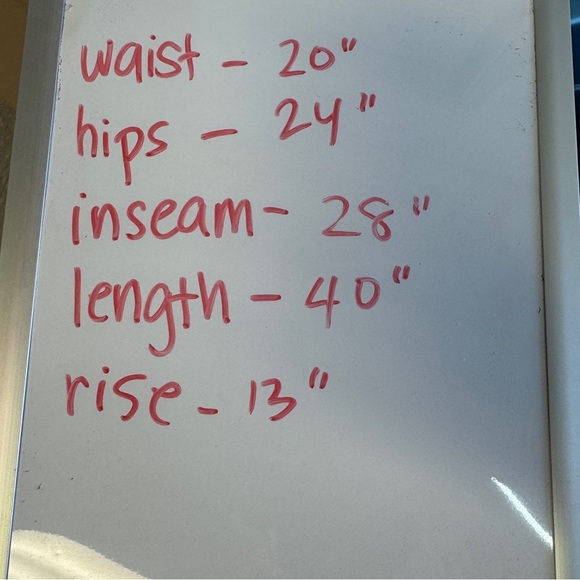 waist - 20"
hips - 24"
inseam - 28"
length - 40"
rise - 13"